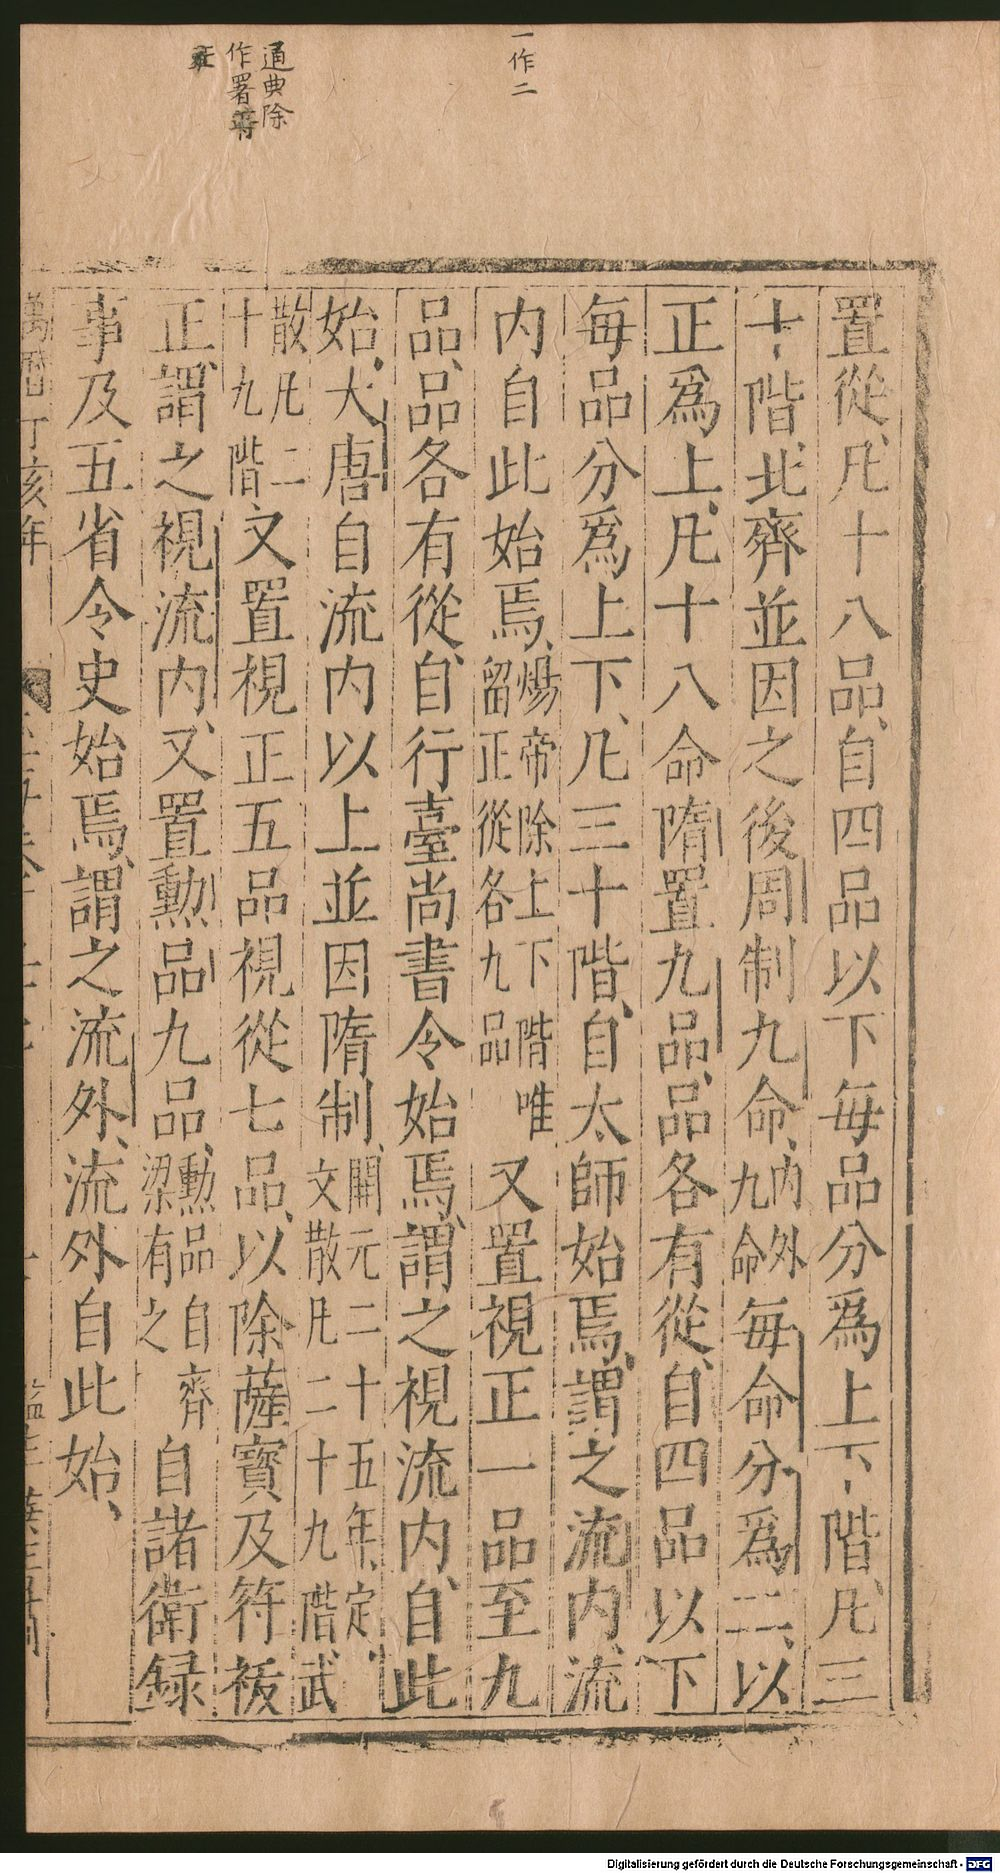 一作二
通典除
作署
置從凡十八品自四品以下每品分爲上下階凡三
十階北齊並因之後周制九命内外九命每命分爲二以
正爲上凡十八命隋置九品品各有從自四品以下
每品分爲上下凡三十階自太師始焉謂之流内流
内自此始焉煬帝除上下階唯留正從各九品又置視正一品至九
品品各有從自行臺尚書令始焉謂之視流内自此
始大唐自流内以上並因隋制開元二十五年定文散凡二十九階武
散凡二十九階文置視正五品視從七品以除薩寶及符祓
正謂之視流内又置勲品九品勲品自齊梁有之自諸衛録
事及五省令史始焉謂之流外流外自此始
萬曆丁亥年
Digitalisierung gefördert durch die Deutsche Forschungsgemeinschaft - DFG